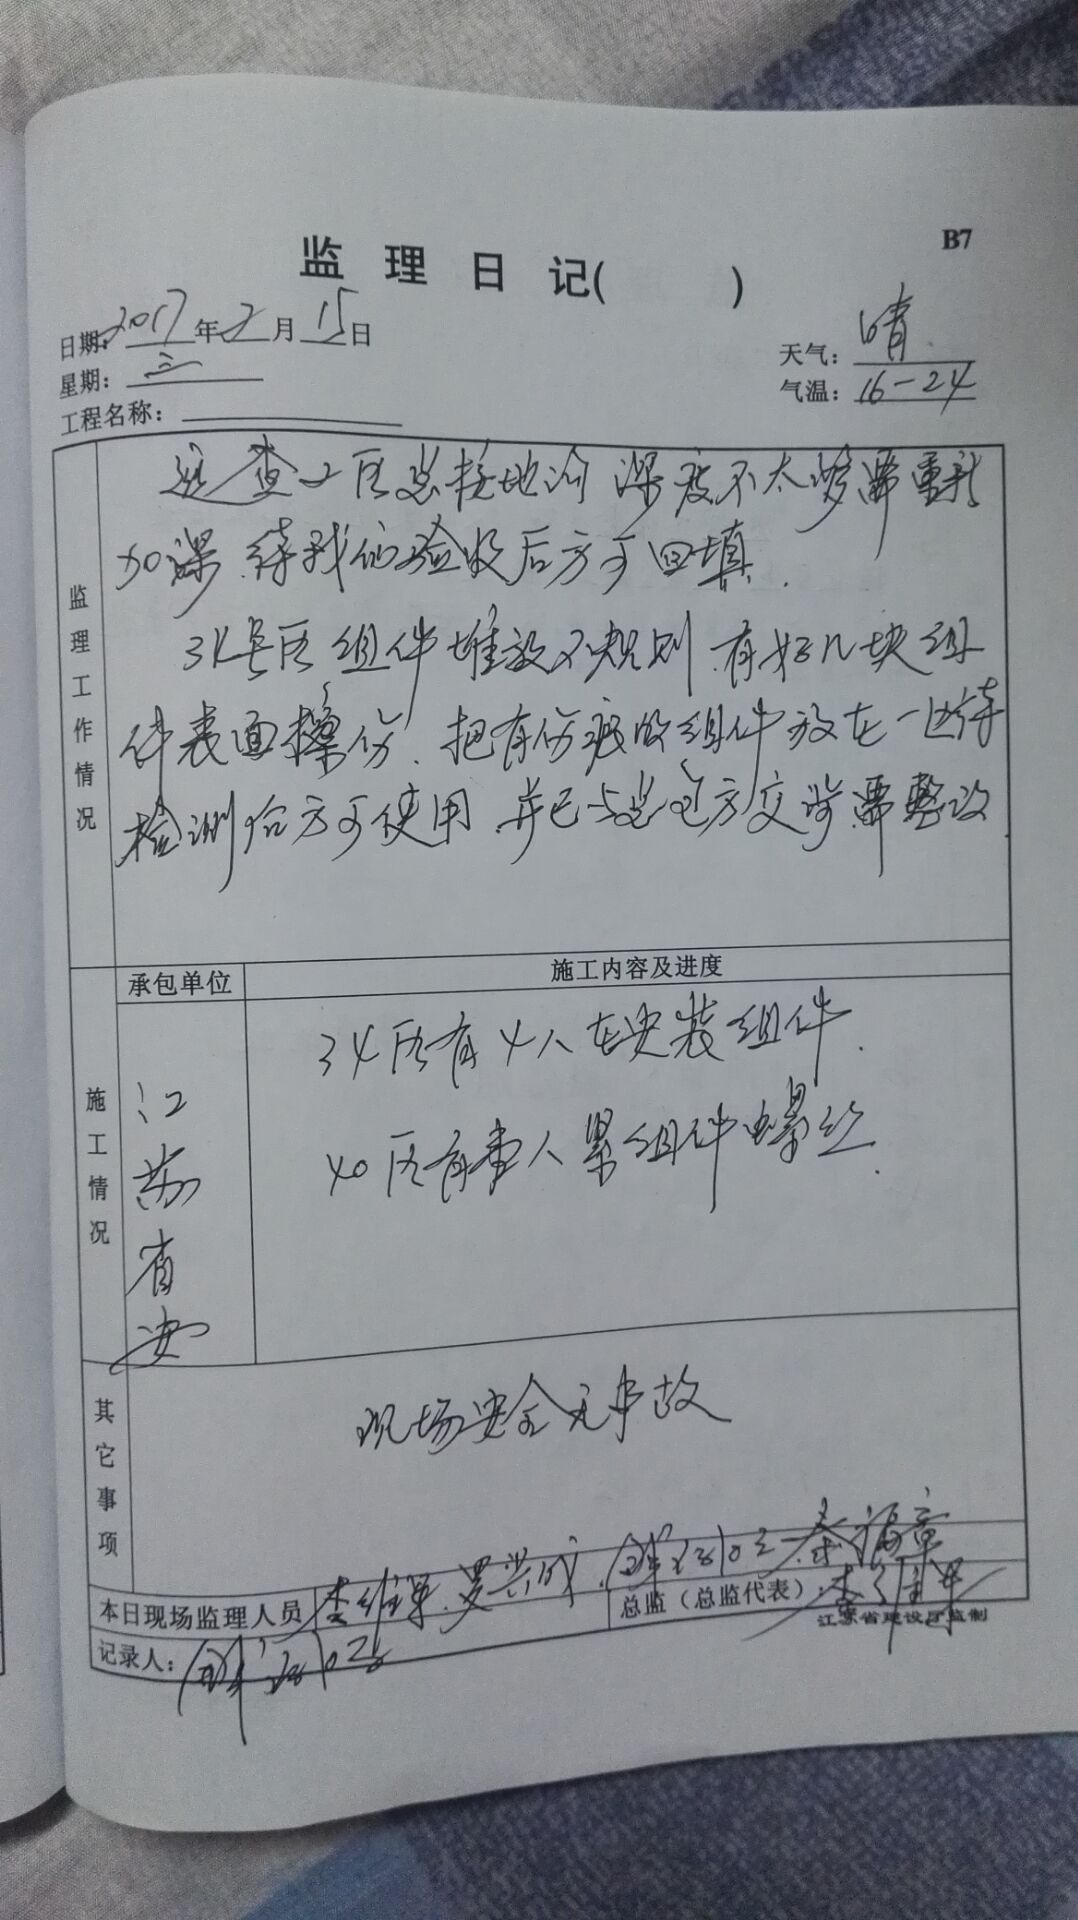 B7
监理日记( )
日期:2017年2月15日
天气:晴
星期:三
气温:16-24
工程名称:
监理工作情况
巡查2区总接地沟深度不太够需重新
加深.待我们验收后方可回填.
号区组件堆放不规则.有好几块组
件表面擦伤.把有伤痕的组件放在一边待
检测后方可使用.并已与总包方交涉需整改
承包单位
施工内容及进度
施工情况
江苏省安
34区有4人在安装组件.
40区有人紧组件螺丝.
其它事项
现场安全无事故
本日现场监理人员
总监(总监代表):
秦福章
江苏省建设厅监制
记录人: